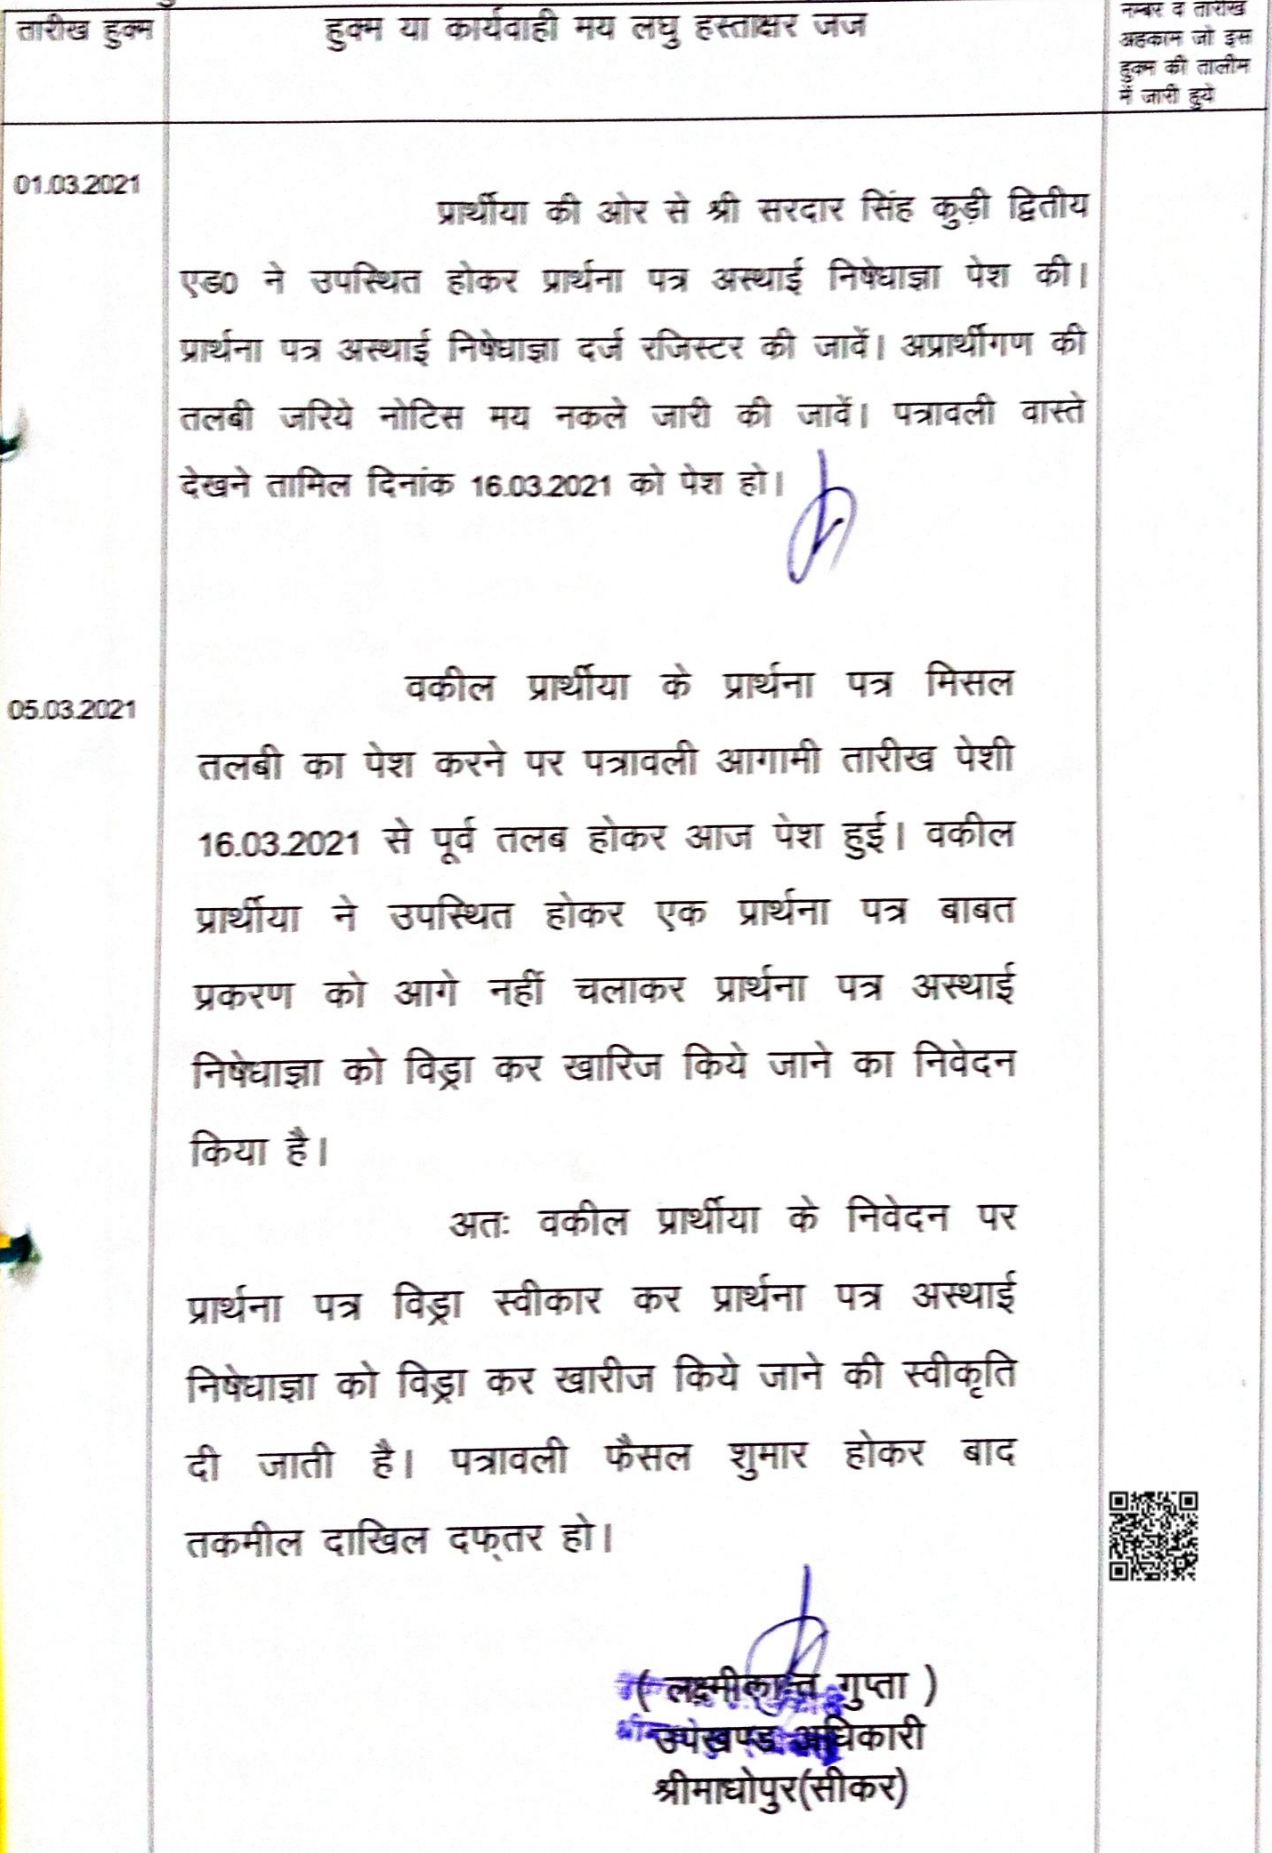 तारीख हुक्म
हुक्म या कार्यवाही मय लघु हस्ताक्षर जज
नम्बर व तारीख
अहकाम जो इस
हुक्म की तालीम
में जारी हुये
01.03.2021
प्रार्थीया की ओर से श्री सरदार सिंह कुड़ी द्वितीय
एड0 ने उपस्थित होकर प्रार्थना पत्र अस्थाई निषेधाज्ञा पेश की।
प्रार्थना पत्र अस्थाई निषेधाज्ञा दर्ज रजिस्टर की जावें। अप्रार्थीगण की
तलबी जरिये नोटिस मय नकले जारी की जावें। पत्रावली वास्ते
देखने तामिल दिनांक 16.03.2021 को पेश हो।
05.03.2021
वकील प्रार्थीया के प्रार्थना पत्र मिसल
तलबी का पेश करने पर पत्रावली आगामी तारीख पेशी
16.03.2021 से पूर्व तलब होकर आज पेश हुई। वकील
प्रार्थीया ने उपस्थित होकर एक प्रार्थना पत्र बाबत
प्रकरण को आगे नहीं चलाकर प्रार्थना पत्र अस्थाई
निषेधाज्ञा को विड्रा कर खारिज किये जाने का निवेदन
किया है।
अतः वकील प्रार्थीया के निवेदन पर
प्रार्थना पत्र विड्रा स्वीकार कर प्रार्थना पत्र अस्थाई
निषेधाज्ञा को विड्रा कर खारीज किये जाने की स्वीकृति
दी जाती है। पत्रावली फैसल शुमार होकर बाद
तकमील दाखिल दफ्तर हो।
( लक्ष्मीकान्त गुप्ता )
उपखण्ड अधिकारी
श्रीमाधोपुर(सीकर)